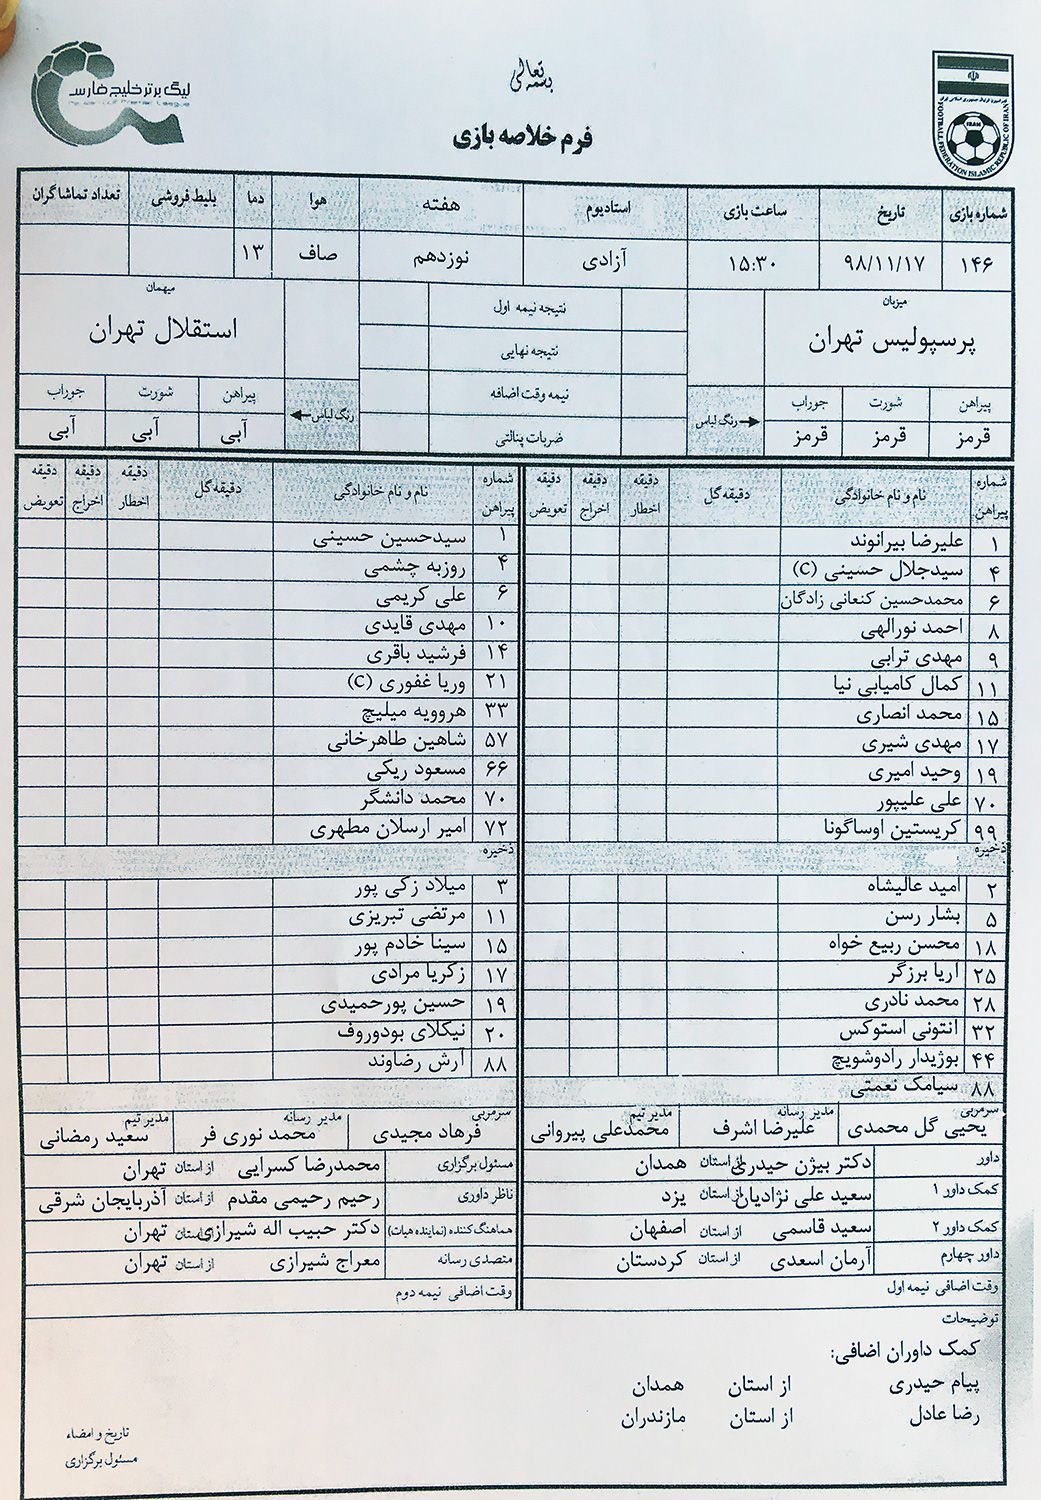 بسمه تعالی
لیگ برتر خلیج فارس
Persian Gulf Premier League
FOOTBALL FEDERATION ISLAMIC REPUBLIC OF IRAN
IRAN
فرم خلاصه بازی
شماره بازی تاریخ ساعت بازی استادیوم هفته هوا دما بلیط فروشی تعداد تماشاگران
۱۴۶ ۹۸/۱۱/۱۷ ۱۵:۳۰ آزادی نوزدهم صاف ۱۳
میزبان نتیجه نیمه اول میهمان
پرسپولیس تهران نتیجه نهایی استقلال تهران
نیمه وقت اضافه
پیراهن شورت جوراب رنگ لباس ضربات پنالتی رنگ لباس پیراهن شورت جوراب
قرمز قرمز قرمز آبی آبی آبی
شماره پیراهن نام و نام خانوادگی دقیقه گل دقیقه اخطار دقیقه اخراج دقیقه تعویض شماره پیراهن نام و نام خانوادگی دقیقه گل دقیقه اخطار دقیقه اخراج دقیقه تعویض
۱ علیرضا بیرانوند ۱ سیدحسین حسینی
۴ سیدجلال حسینی (C) ۴ روزبه چشمی
۶ محمدحسین کنعانی زادگان ۶ علی کریمی
۸ احمد نورالهی ۱۰ مهدی قایدی
۹ مهدی ترابی ۱۴ فرشید باقری
۱۱ کمال کامیابی نیا ۲۱ وریا غفوری (C)
۱۵ محمد انصاری ۳۳ هروویه میلیچ
۱۷ مهدی شیری ۵۷ شاهین طاهرخانی
۱۹ وحید امیری ۶۶ مسعود ریکی
۷۰ علی علیپور ۷۰ محمد دانشگر
۹۹ کریستین اوساگونا ۷۲ امیر ارسلان مطهری
ذخیره ذخیره
۲ امید عالیشاه ۳ میلاد زکی پور
۵ بشار رسن ۱۱ مرتضی تبریزی
۱۸ محسن ربیع خواه ۱۵ سینا خادم پور
۲۵ آریا برزگر ۱۷ زکریا مرادی
۲۸ محمد نادری ۱۹ حسین پورحمیدی
۳۲ انتونی استوکس ۲۰ نیکلای بودوروف
۴۴ بوژیدار رادوشویچ ۸۸ آرش رضاوند
۸۸ سیامک نعمتی
سرمربی مدیر رسانه مدیر تیم سرمربی مدیر رسانه مدیر تیم
یحیی گل محمدی علیرضا اشرف محمدعلی پیروانی فرهاد مجیدی محمد نوری فر سعید رمضانی
داور دکتر بیژن حیدری از استان همدان مسئول برگزاری محمدرضا کسرایی از استان تهران
کمک داور ۱ سعید علی نژادیان از استان یزد ناظر داوری رحیم رحیمی مقدم از استان آذربایجان شرقی
کمک داور ۲ سعید قاسمی از استان اصفهان هماهنگ کننده (نماینده هیات) دکتر حبیب اله شیرازی از استان تهران
داور چهارم آرمان اسعدی از استان کردستان متصدی رسانه معراج شیرازی از استان تهران
وقت اضافی نیمه اول وقت اضافی نیمه دوم
توضیحات
کمک داوران اضافی:
پیام حیدری از استان همدان
رضا عادل از استان مازندران
تاریخ و امضاء
مسئول برگزاری